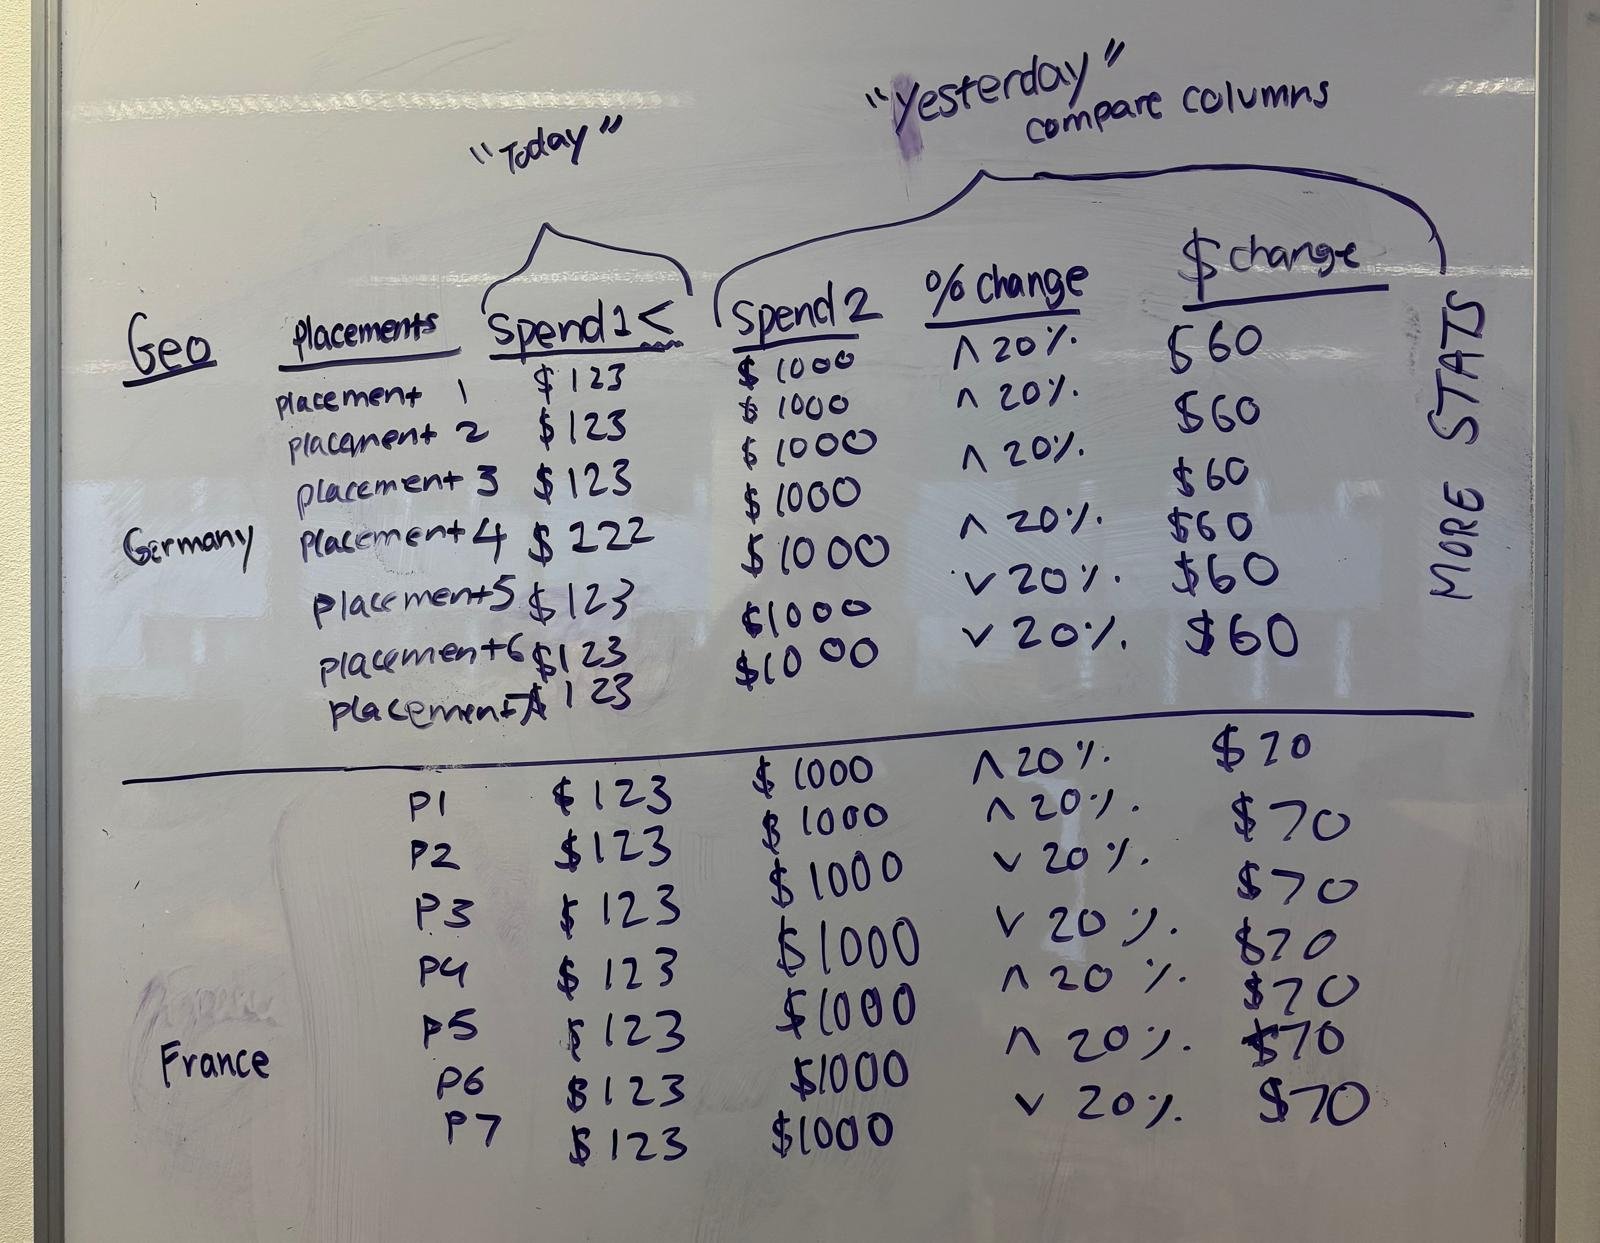 "Yesterday"
compare columns
"Today"
Geo placements Spend1 < Spend2 % change $ change
placement 1 $123 $1000 ^ 20% $60
placement 2 $123 $1000 ^ 20% $60
placement 3 $123 $1000 ^ 20% $60
Germany placement 4 $222 $1000 ^ 20% $60
placement 5 $123 $1000 v 20% $60
placement 6 $123 $1000 v 20% $60
placement 7 $123 $1000
MORE STATS
P1 $123 $1000 ^ 20% $70
P2 $123 $1000 ^ 20% $70
P3 $123 $1000 v 20% $70
P4 $123 $1000 v 20% $70
P5 $123 $1000 ^ 20% $70
France P6 $123 $1000 ^ 20% $70
P7 $123 $1000 v 20% $70